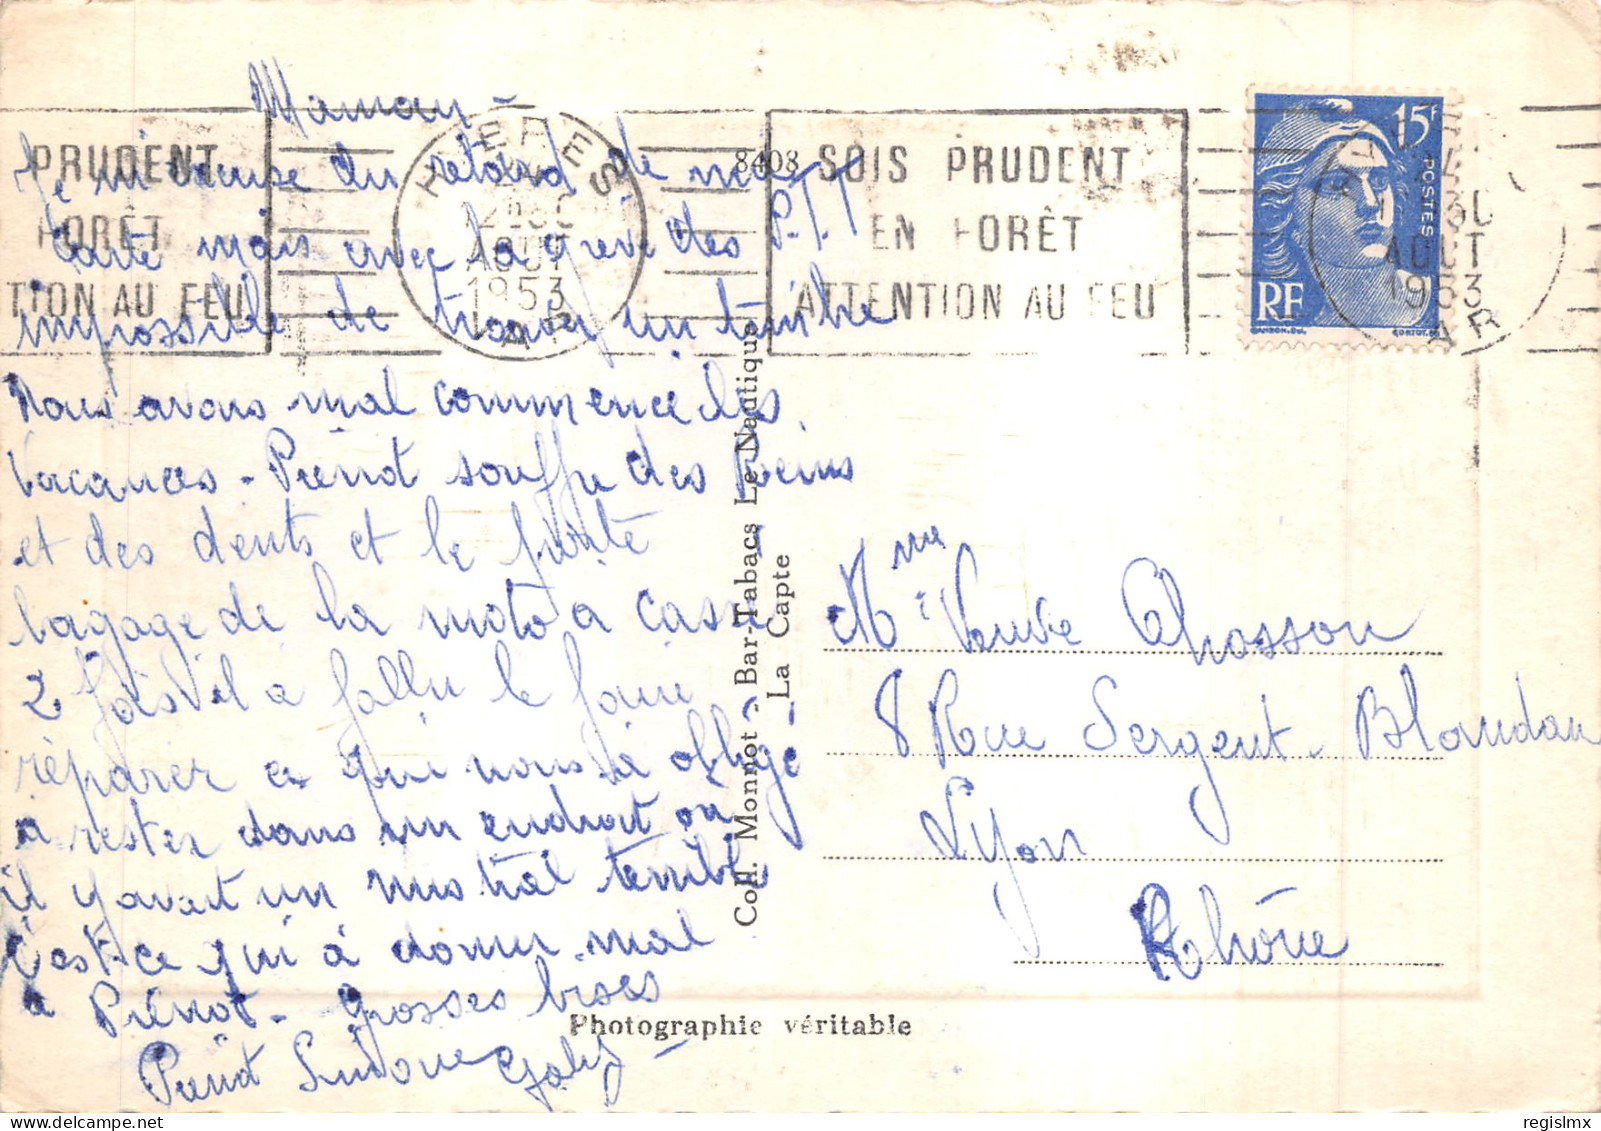 Maman -
Je m'excuse du retard de ma
carte mais avec la grève des P.T.T
impossible de trouver un timbre
Nous avons mal commencé les
vacances - Pierrot souffre des Reins
et des dents et le porte
bagage de la moto a cassé
2 fois il a fallu le faire
réparer ce qui nous a obligé
a rester dans un endroit ou
il y avait un mistral terrible
C'est ce qui à donner mal
a Pierrot - Grosses bises
Pierrot Simone Gaby -
PRUDENT
FORÊT
TION AU FEU
HYERES
AOUT
1953
VAR
8408
SOIS PRUDENT
EN FORÊT
ATTENTION AU FEU
15F
POSTES
RF
AOUT
1953
VAR
Coll. Monnot - Bar-Tabacs Le Nautique
La Capte
Mme Veuve Chosson
8 Rue Sergent-Blandan
Lyon
Rhône
Photographie véritable
regislmx